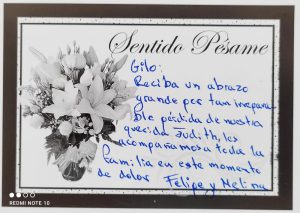 Sentido Pésame
Gilo:
Reciba un abrazo
grande por tan irrepara
ble pérdida de nuestra
querida Judith, les
acompañamos a toda la
familia en este momento
de dolor Felipe y Melina
REDMI NOTE 10